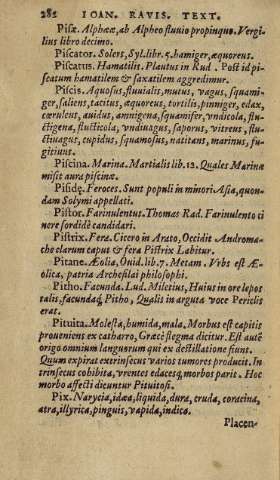 282 IOAN. RAVIS. TEXT.
Pisæ. Alphææ, ab Alpheo fluvio propinquo. Vergi-
lius libro decimo.
Piscator. Solers, Syl.libr.5. hamiger, æquoreus.
Piscatus. Hamatilis. Plautus in Rud. Post id pi-
scatum hamatilem & saxatilem aggredimur.
Piscis. Aquosus, fluuialis, mutus, vagus, squami-
ger, saliens, tacitus, æquoreus, tortilis, pinniger, edax,
cæruleus, auidus, amnigena, squamifer, vndicola, flu-
ctigena, flucticola, vndiuagus, saporus, vitreus, flu-
ctiuagus, cupidus, squamosus, natitans, marinus, fu-
gitiuus.
Piscina. Marina. Martialis lib.13. Quales Marinæ
misit aura piscinæ.
Pisidę. Feroces. Sunt populi in minori Asia, quon-
dam Solymi appellati.
Pistor. Farinulentus. Thomas Rad. Farinulento ci
nere sordidè candidari.
Pistrix. Fera. Cicero in Arato, Occidit Androma-
chæ clarum caput & fera Pistrix Labitur.
Pitane. Æolia, Ouid. lib.7. Metam. Vrbs est Æ-
olica, patria Archesilai philosophi.
Pitho. Facunda. Lud. Miletius, Huius in ore lepos
talis, facundaq́; Pitho, Qualis in arguta voce Periclis
erat.
Pituita. Molesta, humida, mala. Morbus est capitis
proueniens ex catharro, Græcè flegma dicitur. Est autē
origo omnium languorum qui ex destillatione fiunt.
Quum expirat extrinsecus varios tumores producit. In
trinsecus cohibita, vrentes edacesq́; morbos parit. Hoc
morbo affecti dicuntur Pituitosi.
Pix. Narycia, idæa, liquida, dura, cruda, coracina,
atra, illyrica, pinguis, vapida, indica.
Placen-